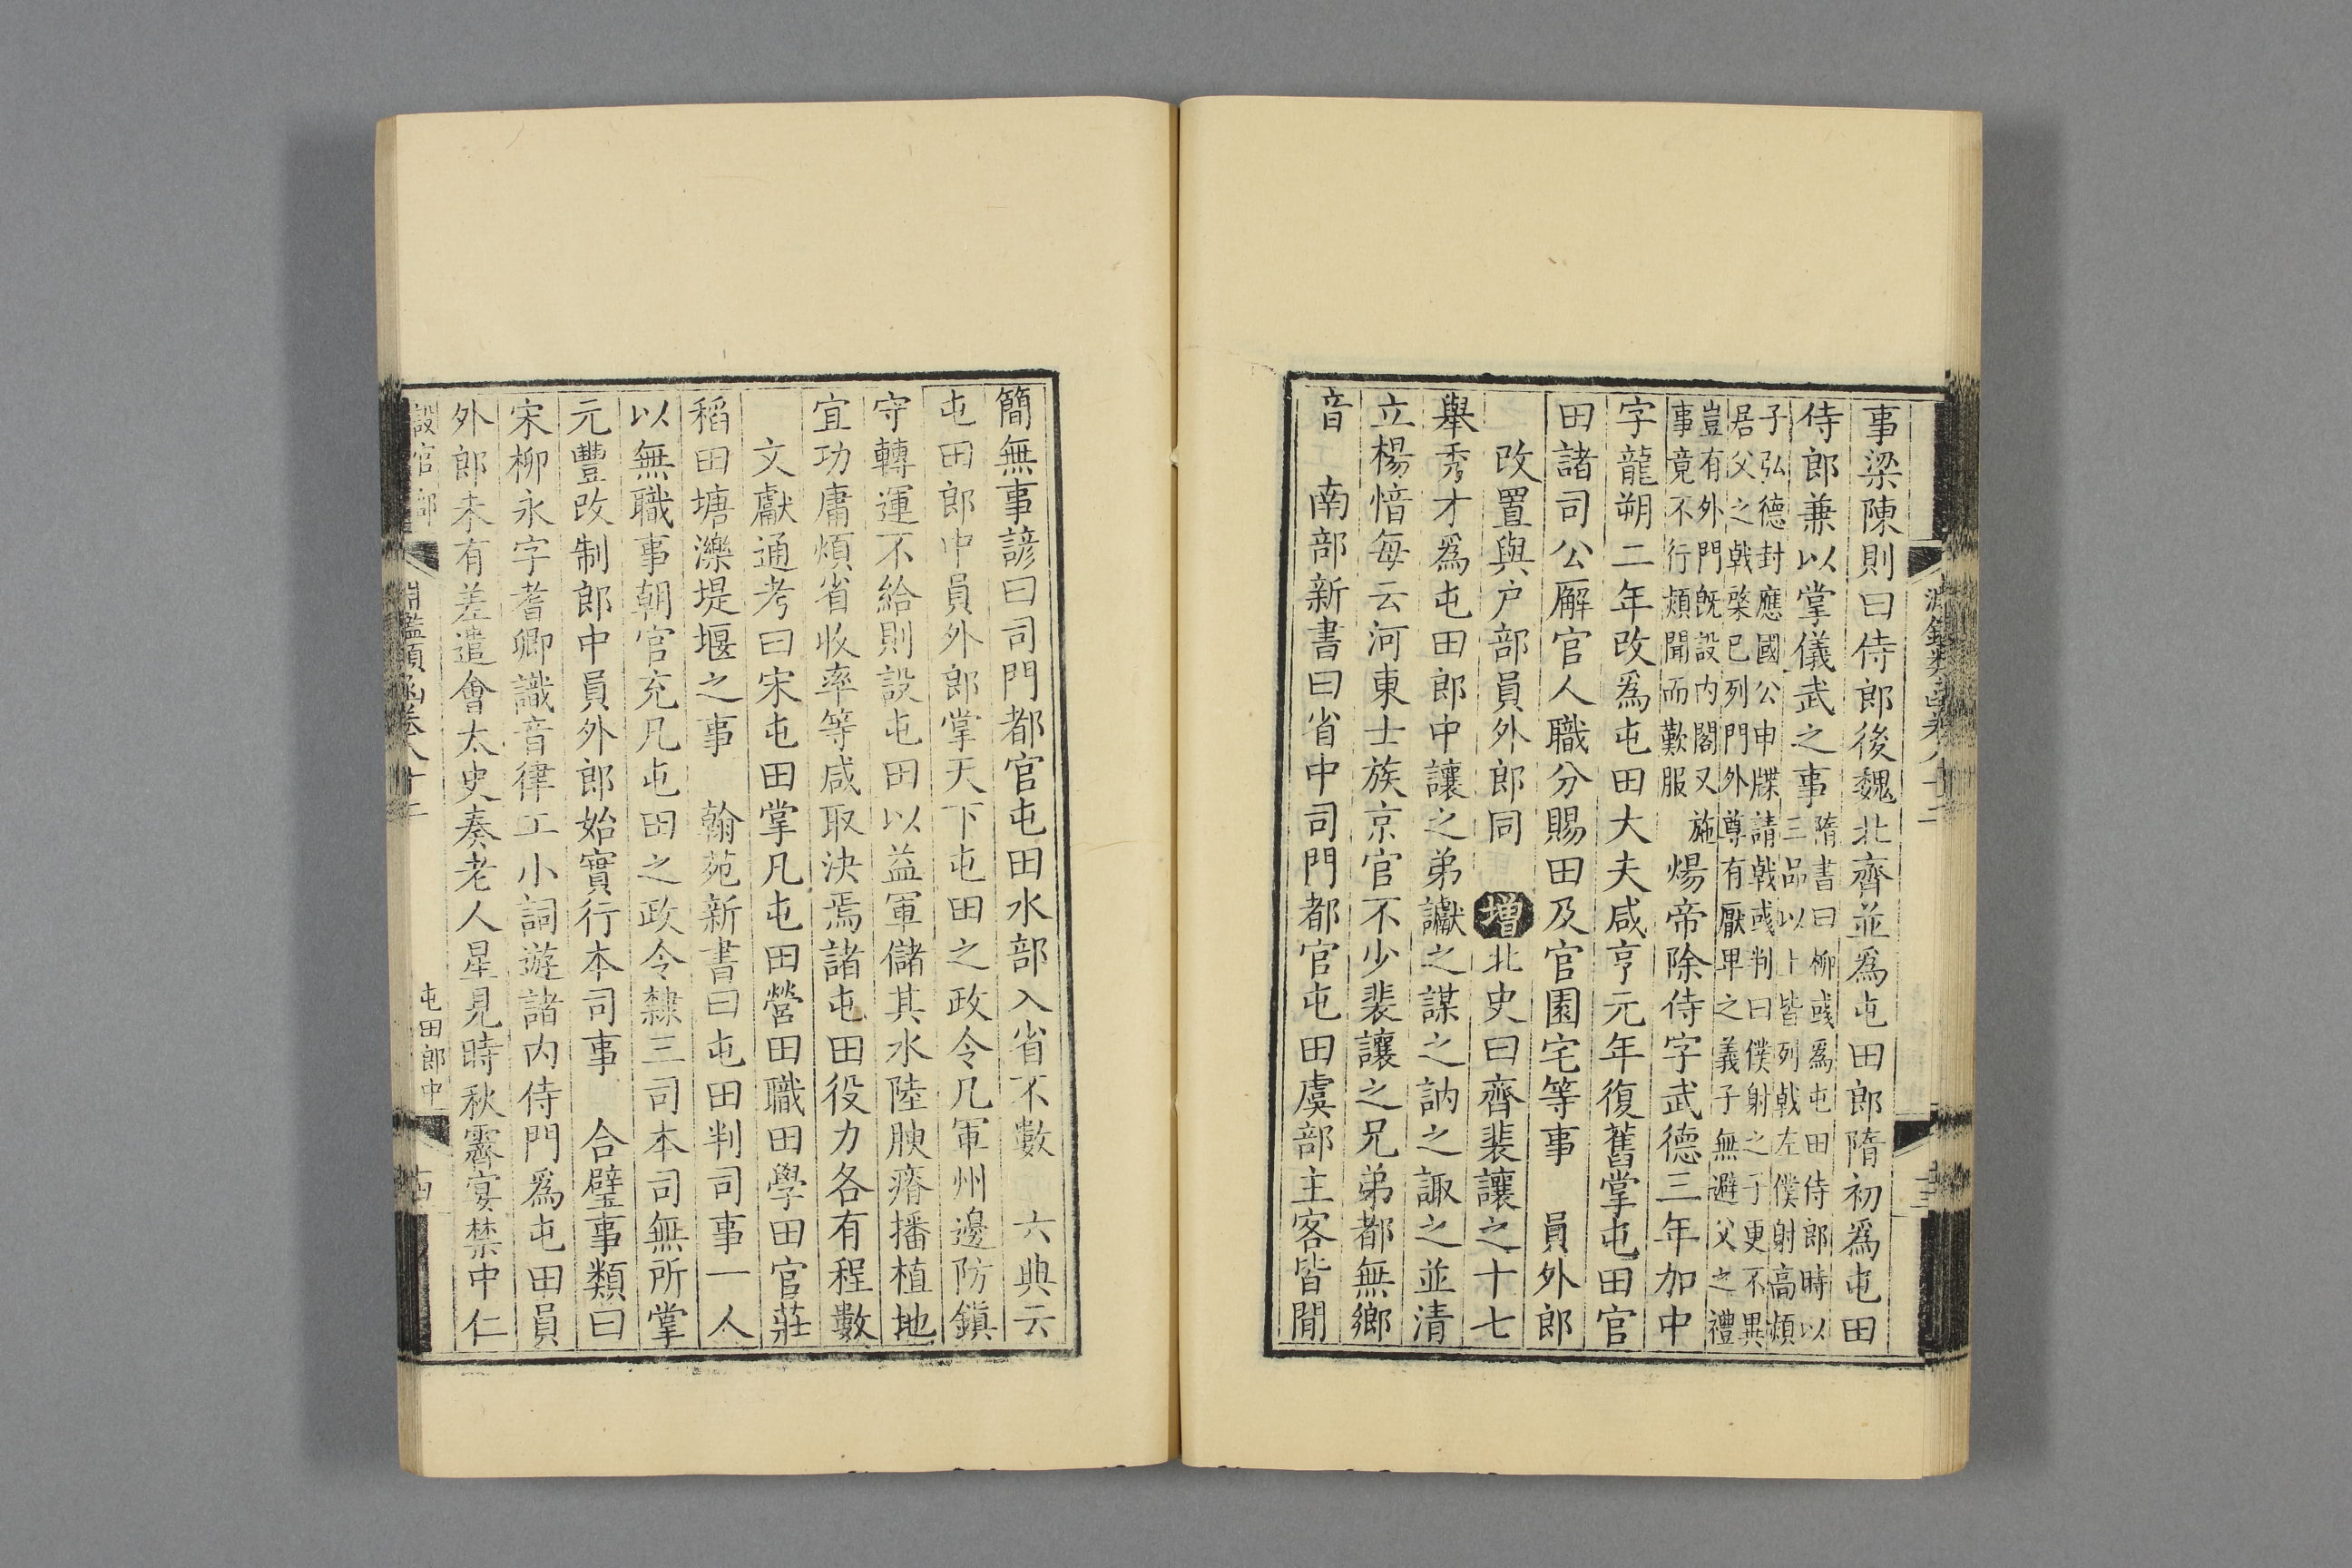 事梁陳則曰侍郎後魏北齊並爲屯田郎隋初爲屯田
侍郎兼以掌儀武之事隋書曰柳彧爲屯田侍郎時以
三品以上皆列戟左僕射高熲
子弘德封應國公申牒請戟彧判曰僕射之子更不異
居父之戟槊已列門外尊有厭卑之義子無避父之禮
豈有外門既設内閣又施
事竟不行熲聞而歎服
煬帝除侍字武德三年加中
字龍朔二年改爲屯田大夫咸亨元年復舊掌屯田官
田諸司公廨官人職分賜田及官園宅等事 員外郎
改置與户部員外郎同 增北史曰齊裴讓之十七
舉秀才爲屯田郎中讓之弟讞之謀之訥之諏之並清
立楊愔每云河東士族京官不少裴讓之兄弟都無鄉
音 南部新書曰省中司門都官屯田虞部主客皆閒
簡無事諺曰司門都官屯田水部入省不數 六典云
屯田郎中員外郎掌天下屯田之政令凡軍州邊防鎮
守轉運不給則設屯田以益軍儲其水陸腴瘠播植地
宜功庸煩省收率等咸取決焉諸屯田役力各有程數
文獻通考曰宋屯田掌凡屯田營田職田學田官莊
稻田塘濼堤堰之事 翰苑新書曰屯田判司事一人
以無職事朝官充凡屯田之政令隸三司本司無所掌
元豐改制郎中員外郎始實行本司事 合璧事類曰
宋柳永字耆卿識音律工小詞遊諸内侍門爲屯田員
外郎未有差遣會太史奏老人星見時秋霽宴禁中仁
設官部 淵鑑類函卷八十二 屯田郎中